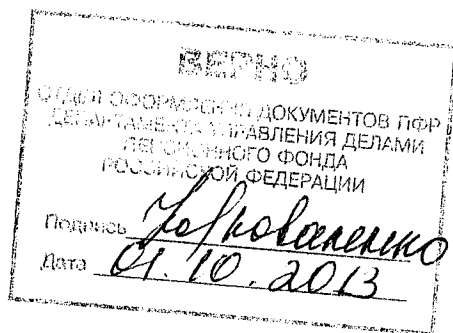 ВЕРНО
ОТДЕЛ ОФОРМЛЕНИЯ ДОКУМЕНТОВ ПФР
ДЕПАРТАМЕНТА УПРАВЛЕНИЯ ДЕЛАМИ
ПЕНСИОННОГО ФОНДА
РОССИЙСКОЙ ФЕДЕРАЦИИ
Подпись
Дата 01.10.2013